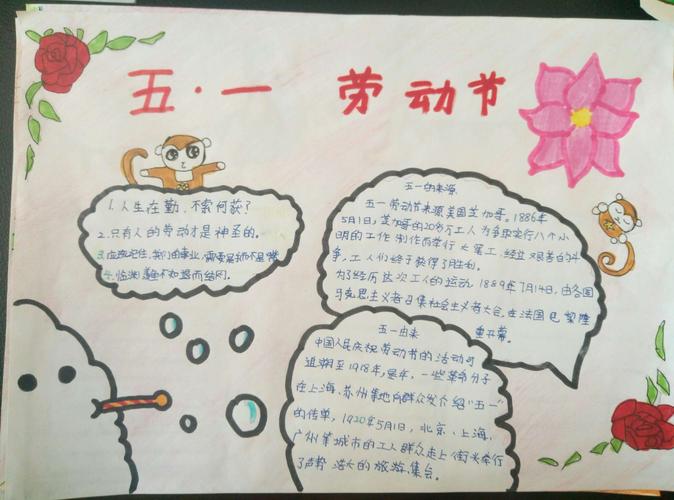 五·一 劳动节
1. 人生在勤、不索何获?
2. 只有人的劳动才是神圣的。
3. 应该记住,我们的事业,需要是手而不是嘴
4. 临渊羡鱼不如退而结网。
五一的来源
五一劳动节来源美国芝加哥。1886年
5月1日,芝加哥的20多万工人为争取实行八个小
时的工作制作而举行大罢工,经过艰苦的斗
争,工人们终于获得了胜利。
为了纪念这次工人的运动,1889年7月14日,由各国
马克思主义者召集社会主义者大会,在法国巴黎隆
重开幕。
五一由来
中国人民庆祝劳动节的活动可
追溯至1918年,是年,一些革命分子
在上海、苏州等地向群众发介绍"五一"
的传单,1920年5月1日,北京、上海、
广州等城市的工人群众走上街头举行
了声势浩大的旅游、集会。